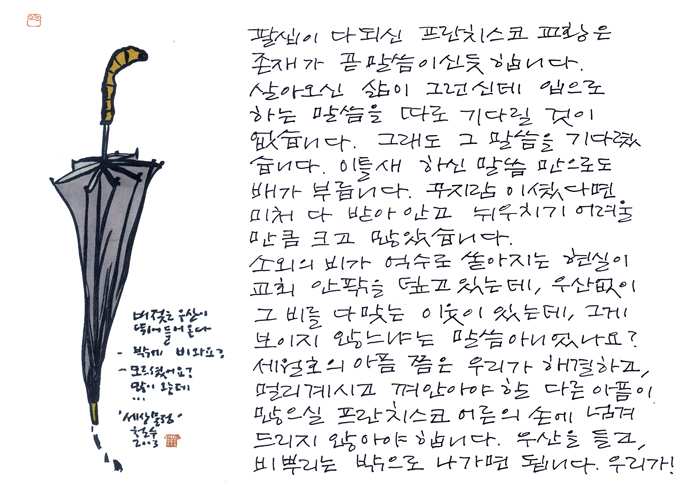 팔십이 다 되신 프란치스코 교황은
존재가 곧 말씀이신듯 합니다.
살아오신 삶이 그러신데 입으로
하는 말씀을 따로 기다릴 것이
없습니다. 그래도 그 말씀을 기다렸
습니다. 이틀새 하신 말씀 만으로도
배가 부릅니다. 꾸지람이셨다면
미처 다 받아 안고 뉘우치기 어려울
만큼 크고 많았습니다.
소외의 비가 억수로 쏟아지는 현실이
교회 안팎을 덮고 있는데, 우산없이
그 비를 다 맞는 이웃이 있는데, 그게
보이지 않느냐는 말씀 아니었나요?
세월호의 아픔 쯤은 우리가 해결하고,
멀리계시고 껴안아야 할 다른 아픔이
많으실 프란치스코 어른의 손에 넘겨
드리지 않아야 합니다. 우산을 들고,
비 뿌리는 밖으로 나가면 됩니다. 우리가!
비 젖은 우산이
뛰어 들어 온다
- 밖에 비 와요?
- 모르셨어요?
많이 오는데
...
'세상물정'
철수
2003